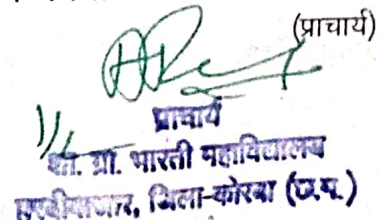 (प्राचार्य)
प्राचार्य
शा. ग्रा. भारती महाविद्यालय
हरदीबाजार, जिला-कोरबा (छ.ग.)